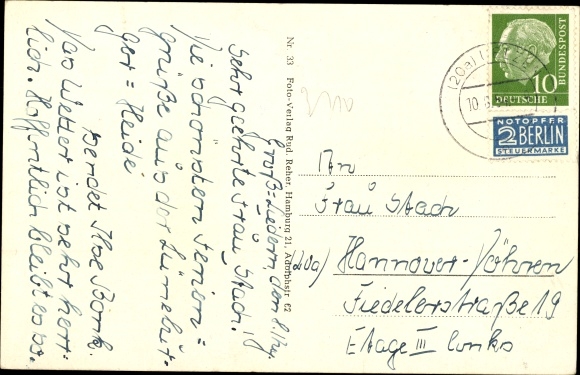 Groß=Liedern, den
Sehr geehrte Frau Stach!
Die schönsten Ferien=
grüße aus der Lünebur-
ger=Heide
sendet Ilse Bonk.
Das Wetter ist sehr herr-
lich. Hoffentlich bleibt es so.
Nr. 33 Foto-Verlag Rud. Reher, Hamburg 21, Adolphstr. 62
(20a)
10
DEUTSCHE BUNDESPOST
10
NOTOPFER
2 BERLIN
STEUERMARKE
An
Frau Stach
(20a) Hannover-Döhren
Fiedelerstraße 19
Etage III links